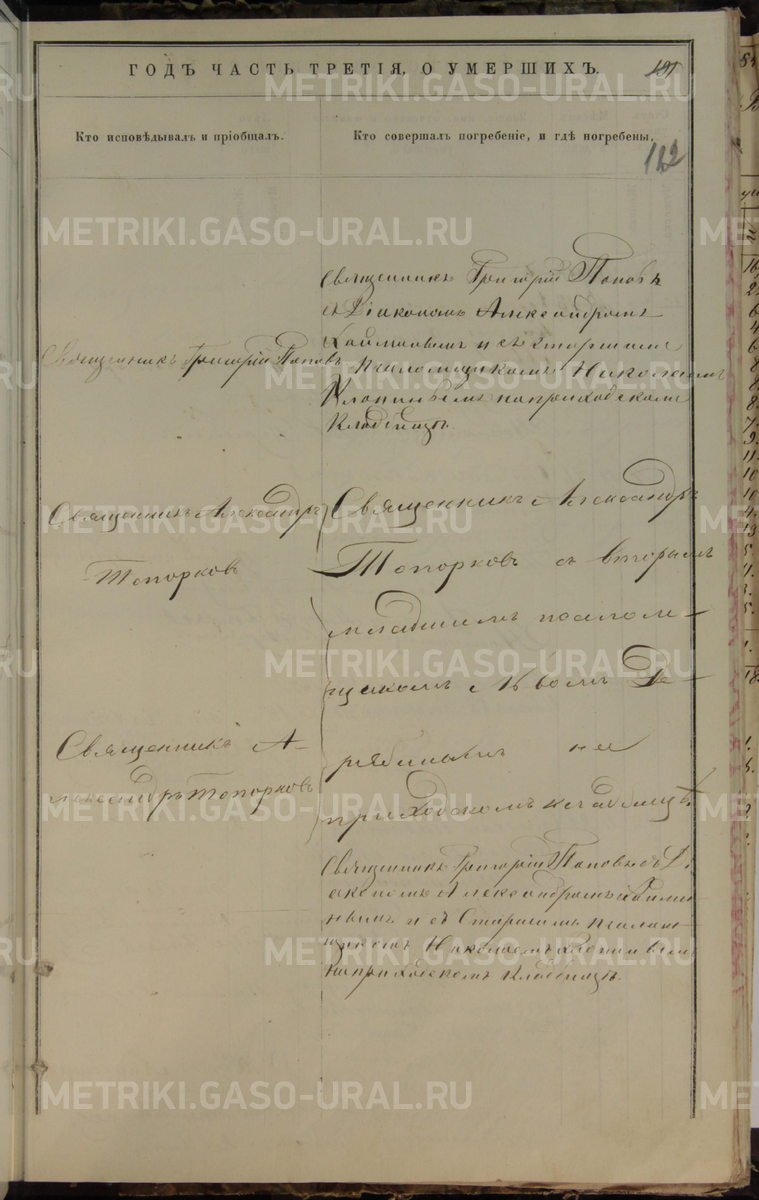 ГОДЪ ЧАСТЬ ТРЕТІЯ, О УМЕРШИХЪ.
191
Кто исповѣдывалъ и пріобщалъ.
Кто совершалъ погребеніе, и гдѣ погребены.
112
Священникъ Григорій Поповъ
Священникъ Григорій Поповъ
съ Діакономъ Александромъ
и съ старшимъ
Псаломщикомъ Николаемъ
на приходскомъ
Кладбищѣ.
Священникъ Александръ
Топорковъ
Священникъ Александръ
Топорковъ съ вторымъ
младшимъ псалом-
щикомъ Львомъ Де-
на
приходскомъ кладбищѣ.
Священникъ А-
лександръ Топорковъ
Священникъ Григорій Поповъ съ Ді-
акономъ Александромъ
и съ Старшимъ псалом-
щикомъ Николаемъ
на приходскомъ Кладбищѣ.
METRIKI.GASO-URAL.RU